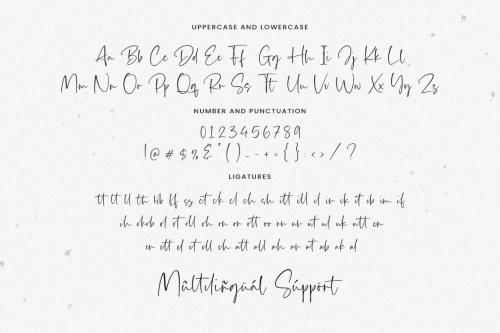 UPPERCASE AND LOWERCASE
Aa Bb Cc Dd Ee Ff Gg Hh Ii Jj Kk Ll
Mm Nn Oo Pp Qq Rr Ss Tt Uu Vv Ww Xx Yy Zz
NUMBER AND PUNCTUATION
0123456789
!@#$%&*()_-+={}:<>/?
LIGATURES
tt lt ll th bb ff ss ct ck cl ch sh itt ill il in ik it ib im if
ih okob ol ot oll oh on or ott oo rn ur ut ul uk utt en
er ett el et ell eh att all ah ar at ab ak al
Mûltilîñgüál Súpport